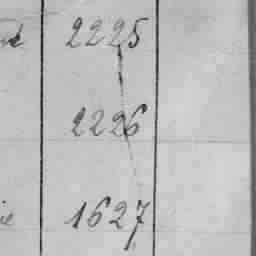 2225
2226
1627